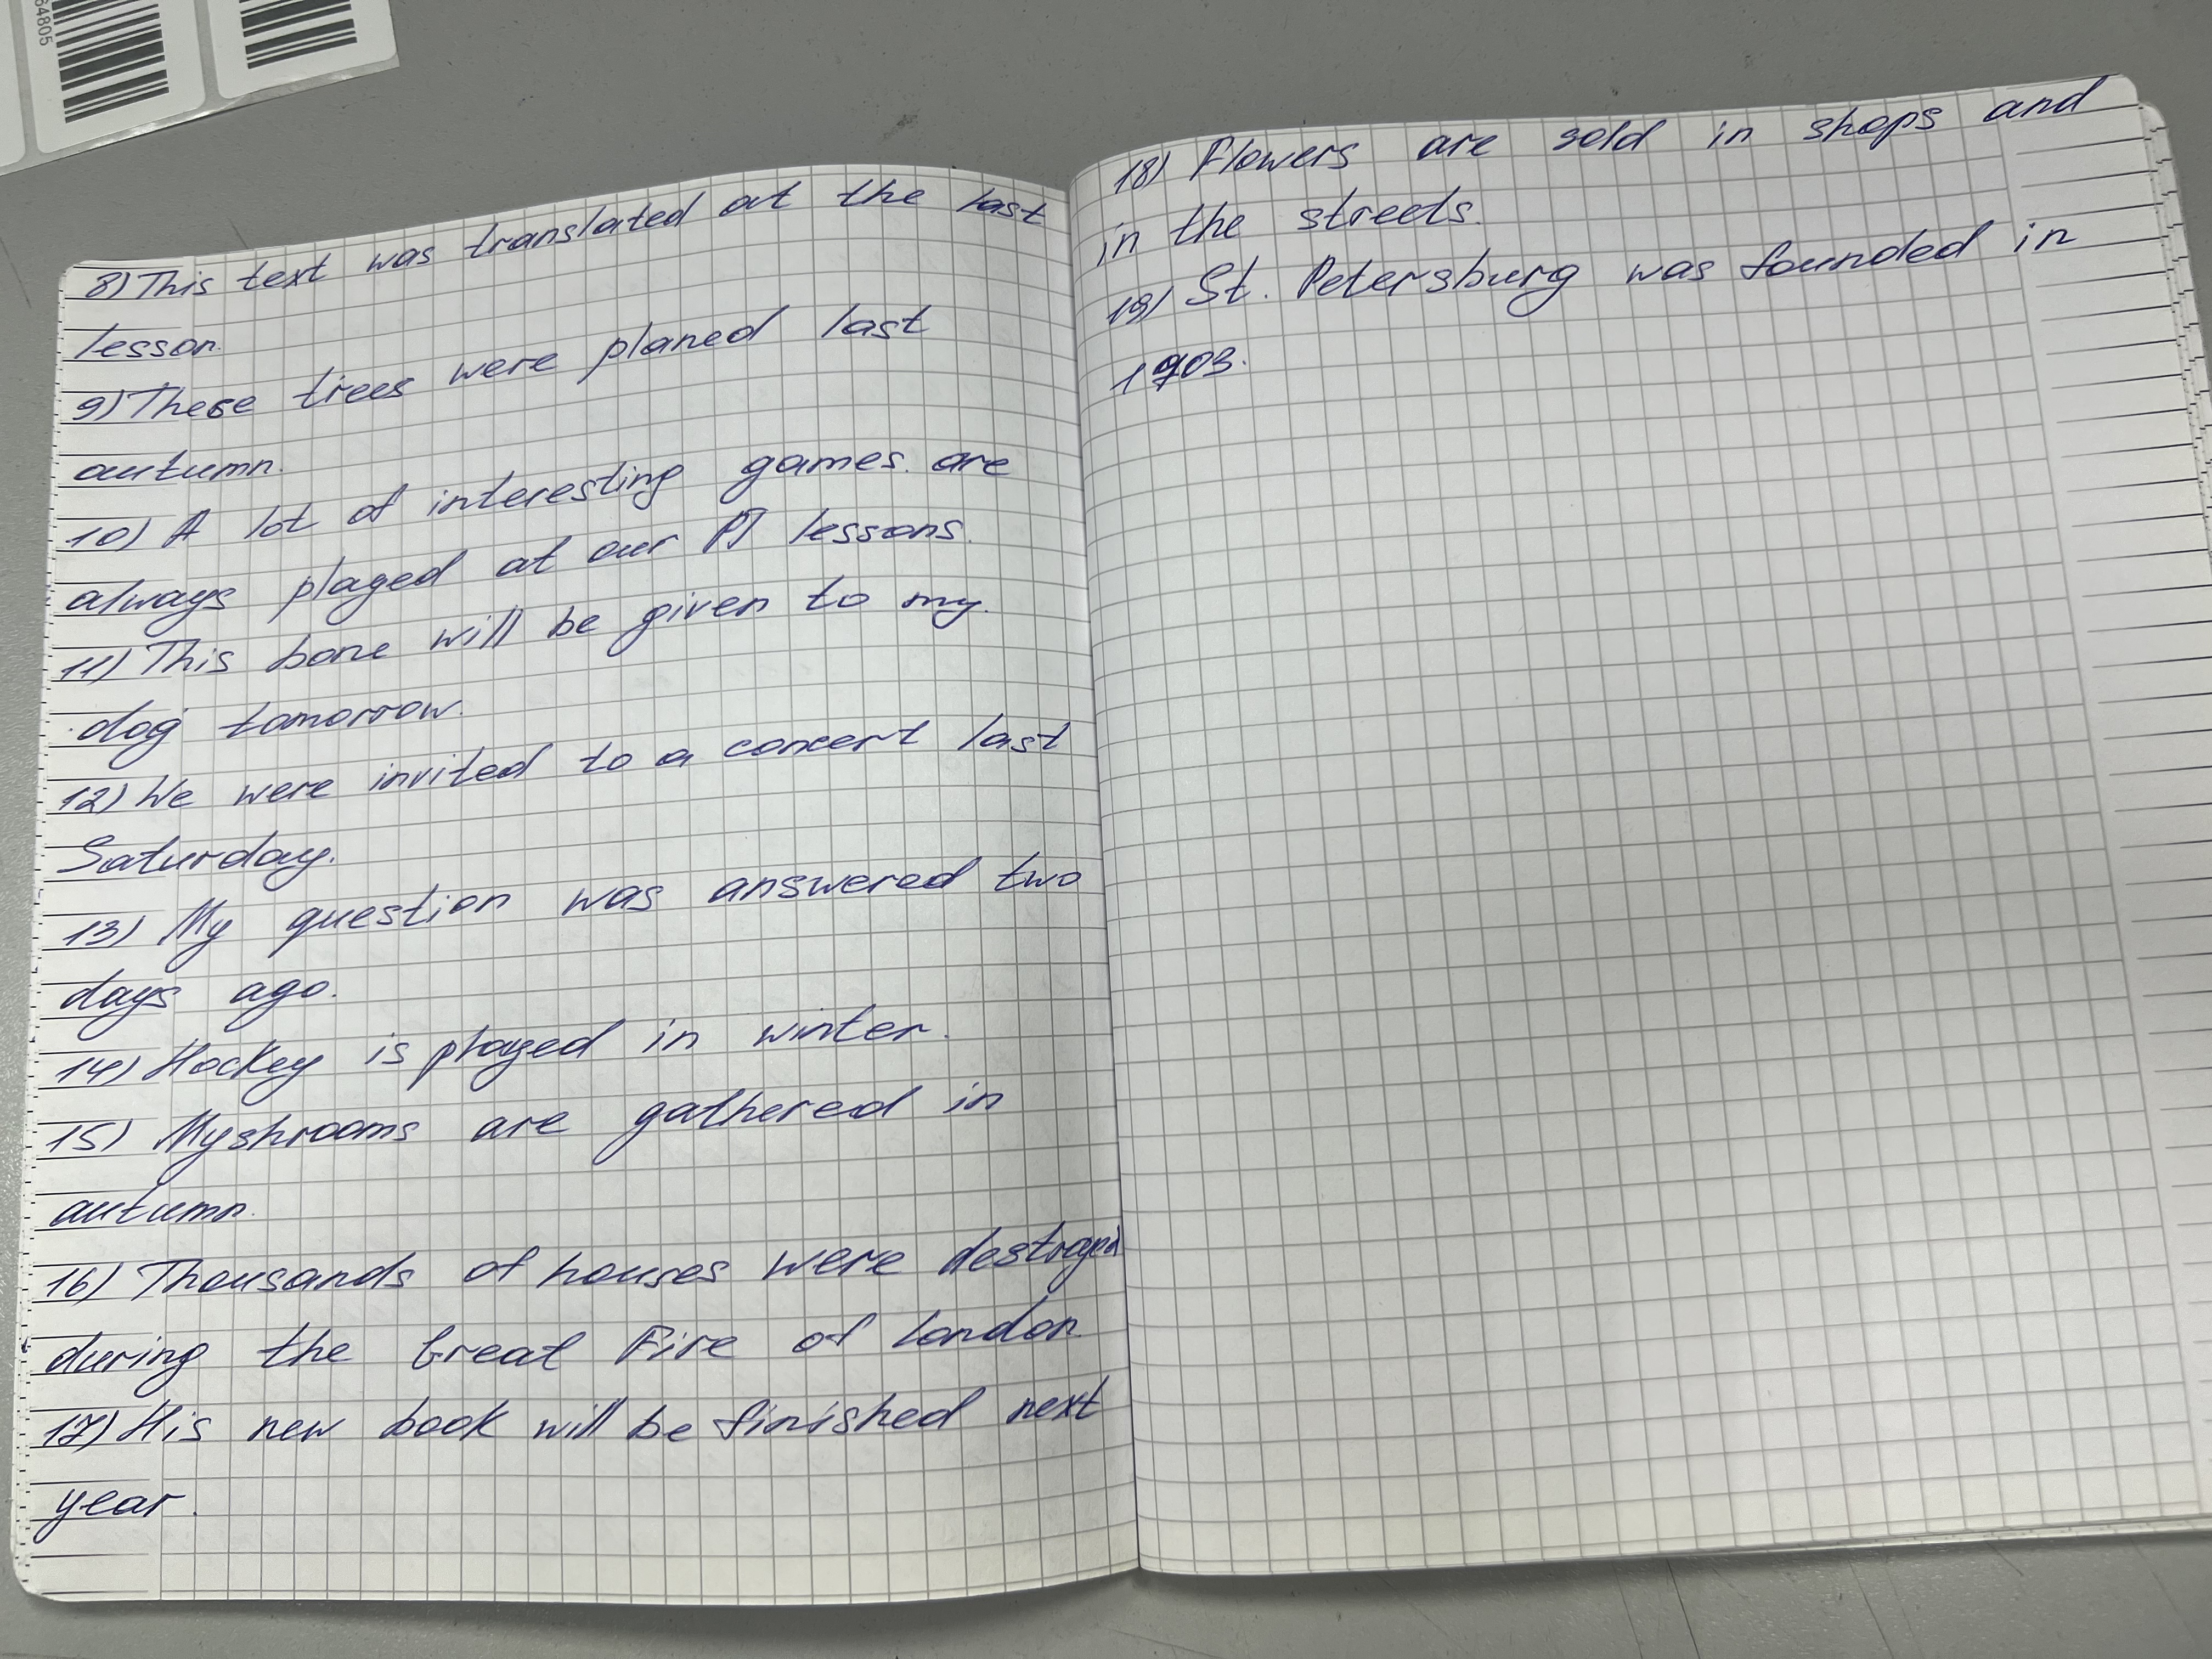 64805
8) This text was translated at the last
lesson.
9) These trees were planed last
autumn.
10) A lot of interesting games are
always played at our PT lessons.
11) This bone will be given to my
dog tomorrow.
12) We were invited to a concert last
Saturday.
13) My question was answered two
days ago.
14) Hockey is played in winter.
15) Myshrooms are gathered in
autumn.
16) Thousands of houses were destroyed
during the Great Fire of London
17) His new book will be finished next
year.
18) Flowers are sold in shops and
in the streets.
19) St. Petersburg was founded in
1903.